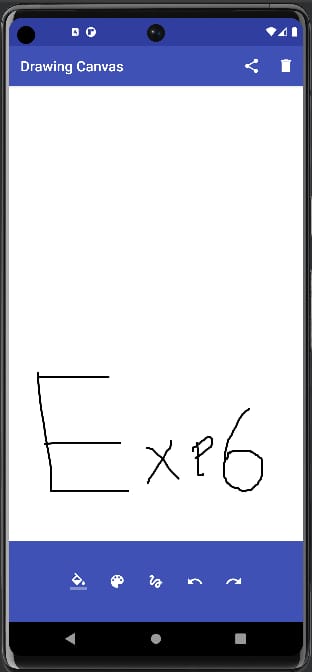 Drawing Canvas
Exp6